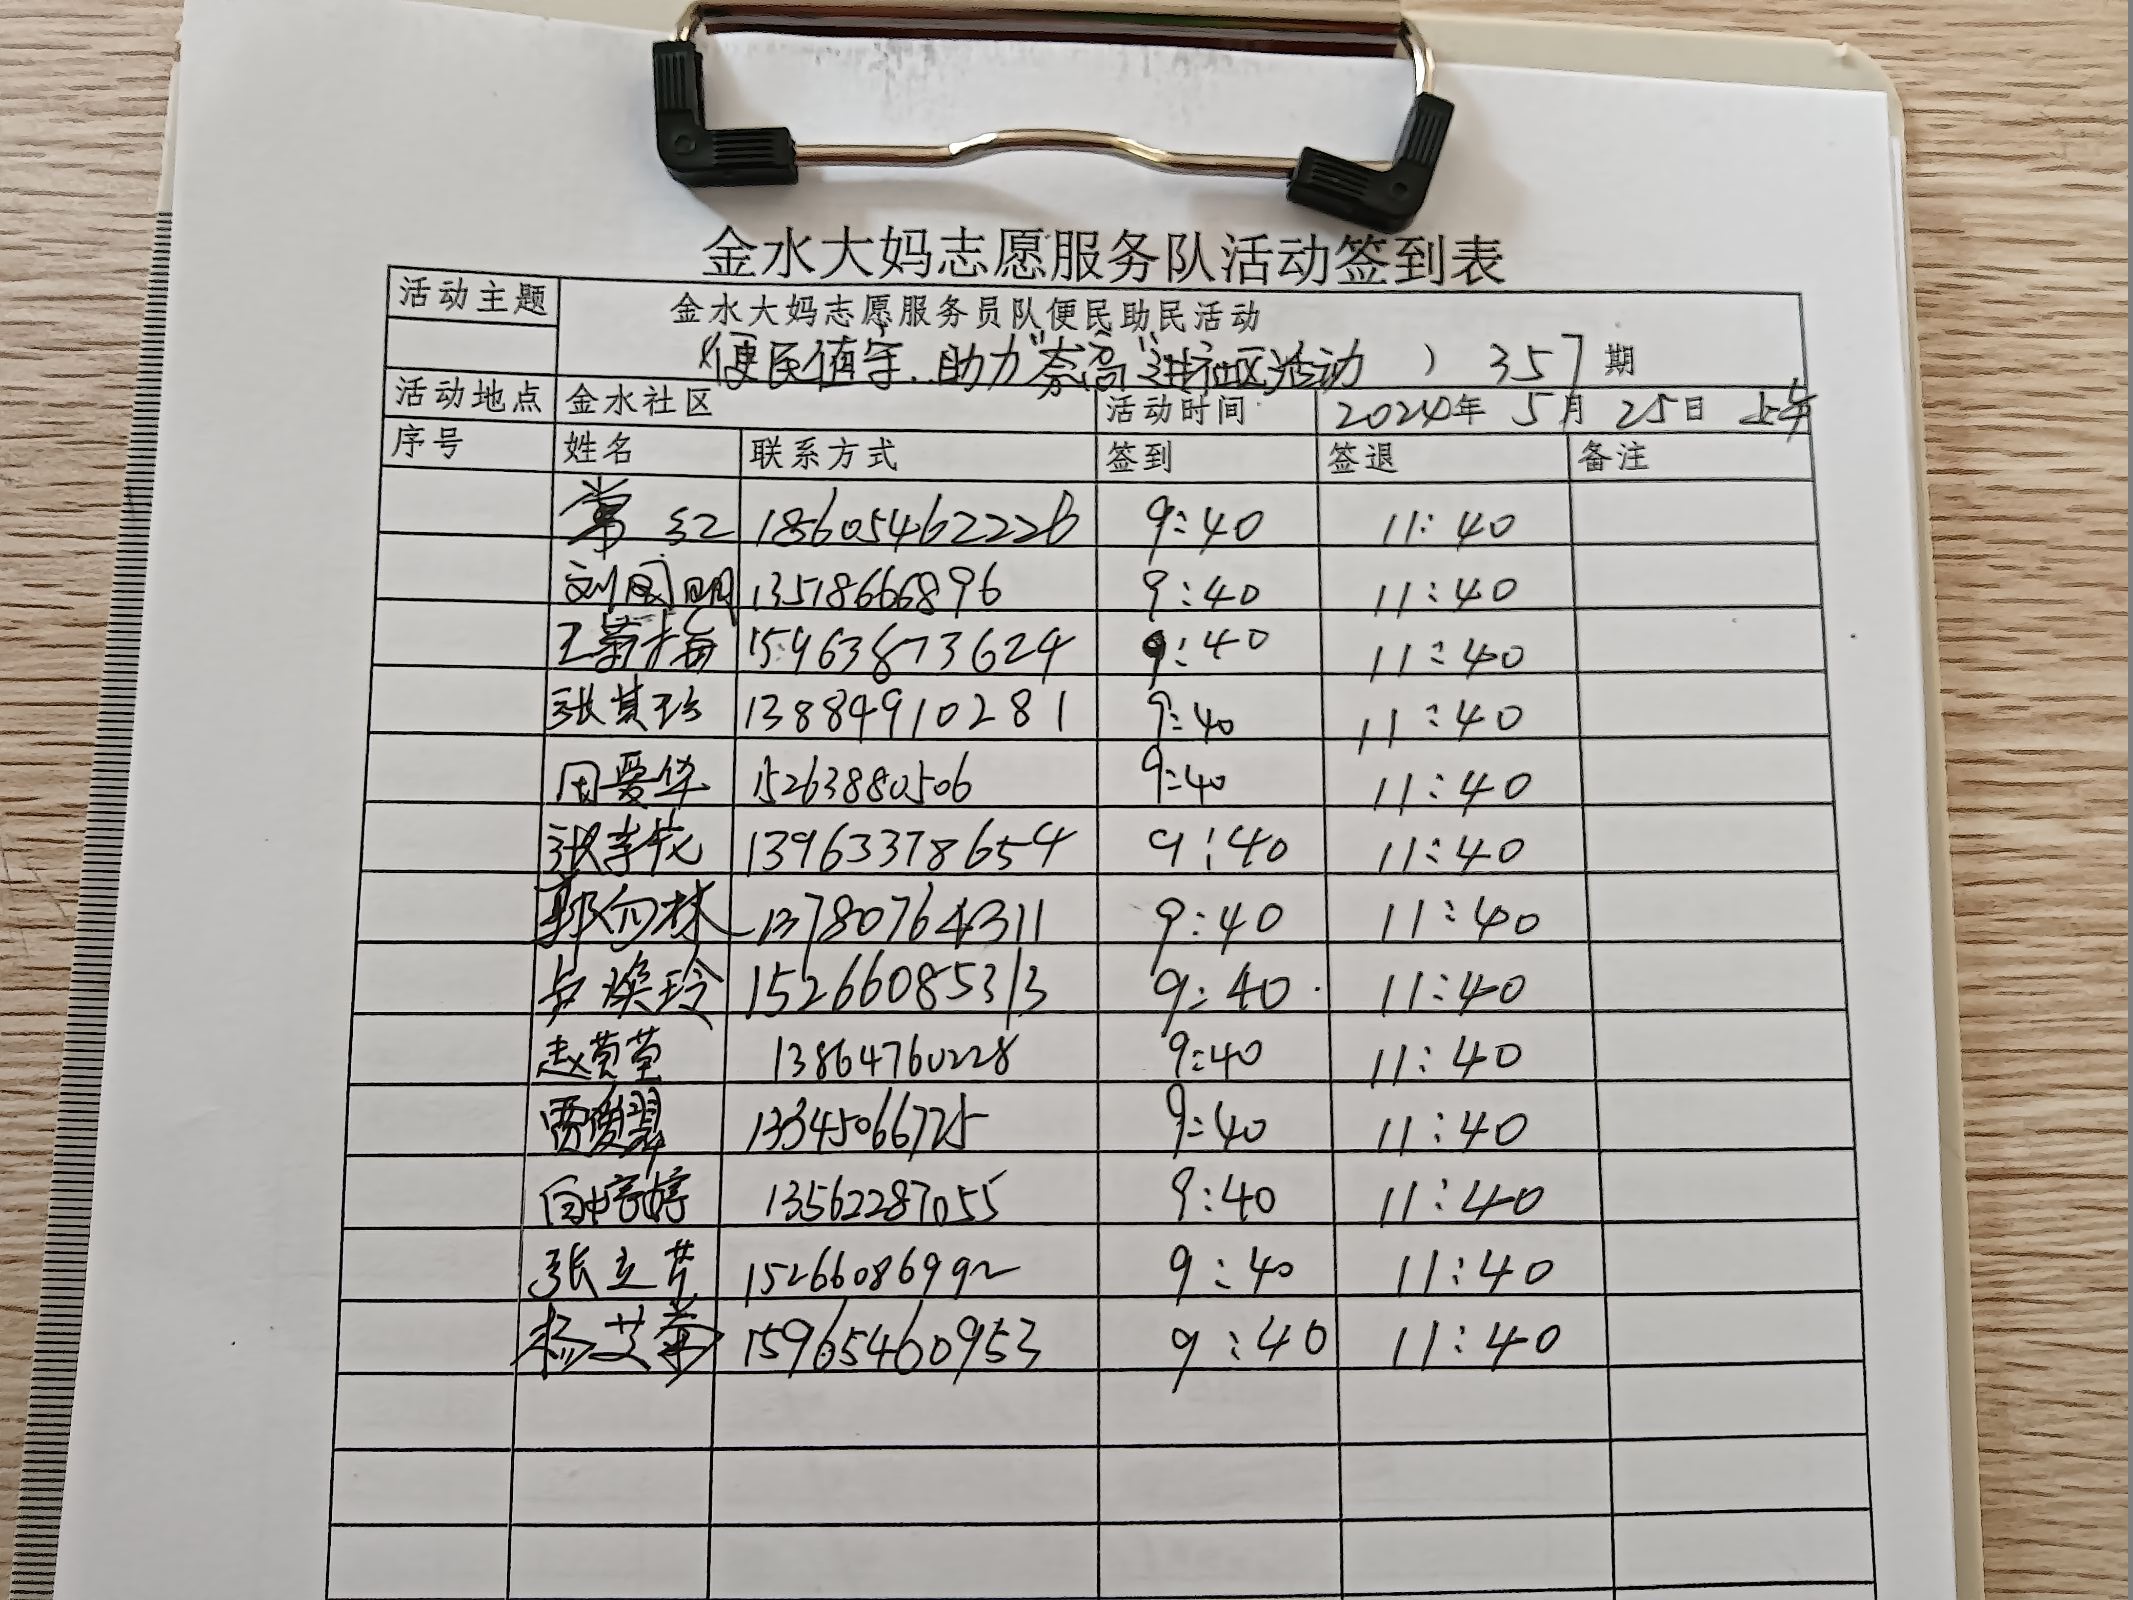 金水大妈志愿服务队活动签到表
活动主题 金水大妈志愿服务员队便民助民活动
（便民值守、助力"泰高"进社区活动 ） 357期
活动地点 金水社区 活动时间 2024年 5月 25日 上午
序号 姓名 联系方式 签到 签退 备注
常红 18605462226 9:40 11:40
刘凤明 13518666896 9:40 11:40
王菊梅 15963873624 9:40 11:40
张其珍 13884910281 9:40 11:40
田爱华 15263880506 9:40 11:40
张孝花 13963378654 9:40 11:40
郭向林 13780764311 9:40 11:40
卢焕玲 15266085313 9:40 11:40
赵 13864760228 9:40 11:40
贾 13345066725 9:40 11:40
13562287055 9:40 11:40
张立芹 15266086992 9:40 11:40
杨艾菊 15965460953 9:40 11:40